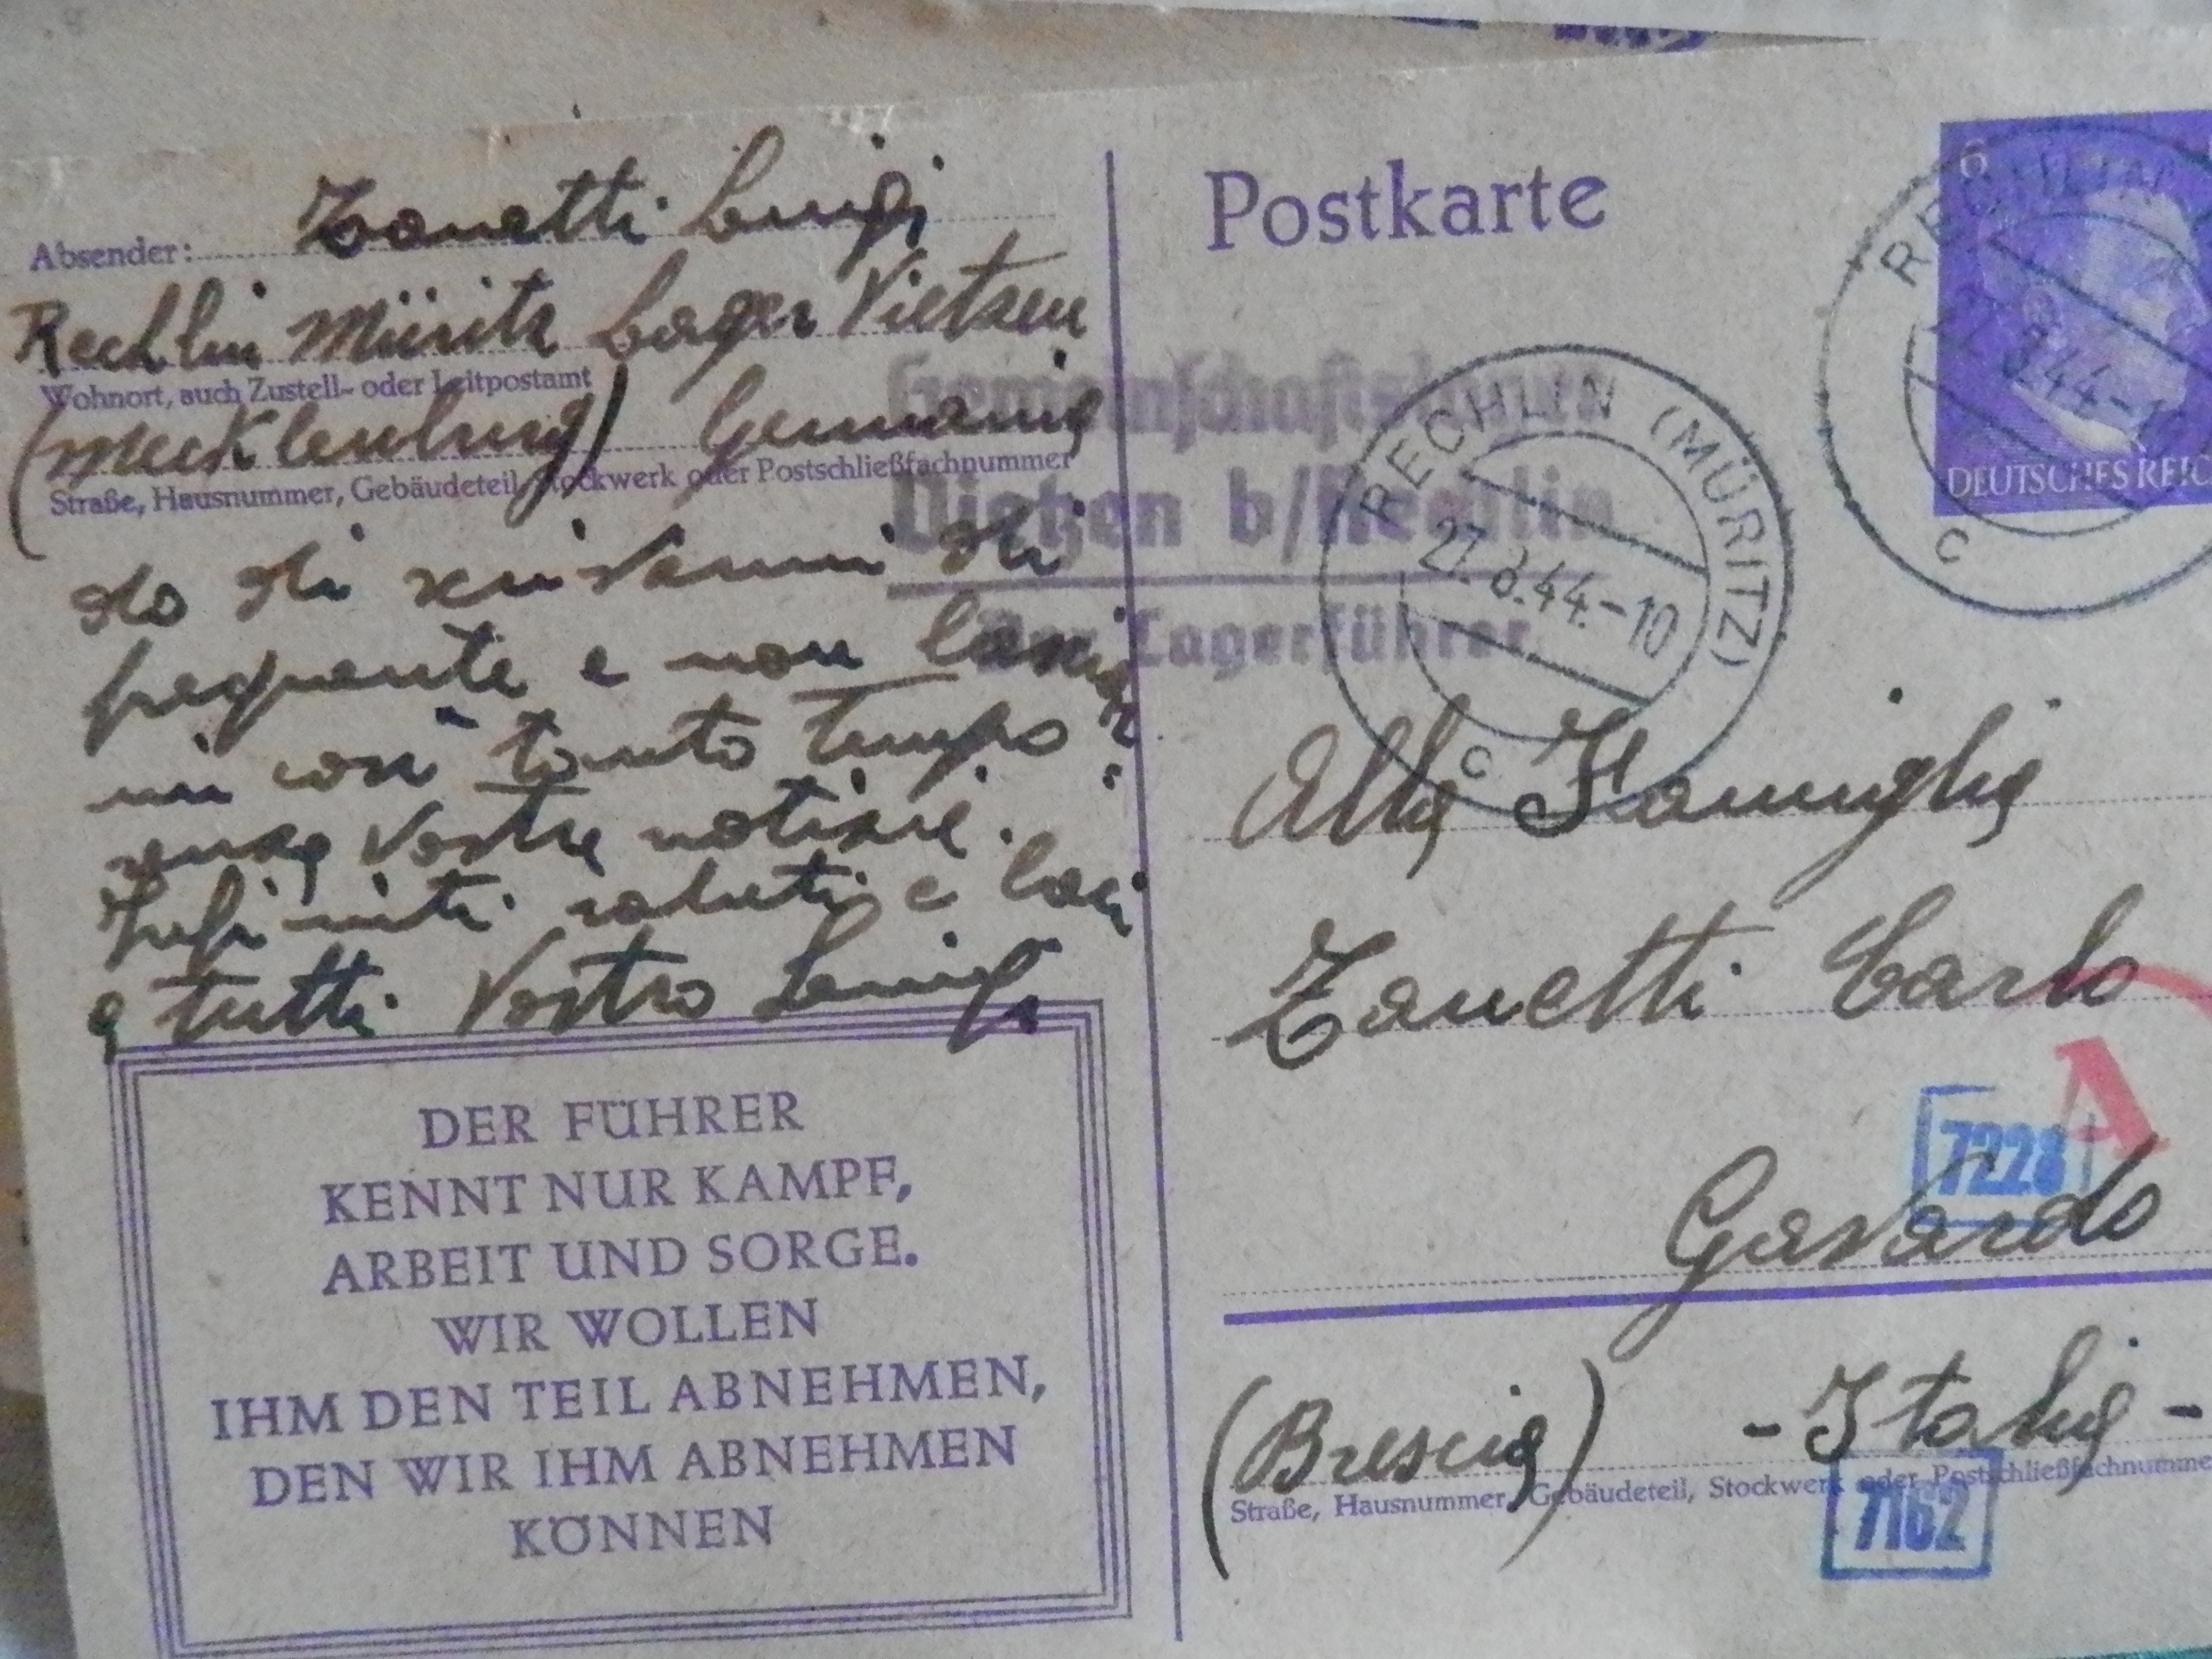 Absender: Zanetti Luigi
Rechlin Müritz Lager Vietzen
Wohnort, auch Zustell- oder Leitpostamt
(Mecklenburg) Germania
Straße, Hausnummer, Gebäudeteil, Stockwerk oder Postschließfachnummer
di scrivermi di
frequente e non lasciar
mi così tanto tempo
senza vostre notizie.
Infiniti saluti e baci
a tutti Vostro Luigi
DER FÜHRER
KENNT NUR KAMPF,
ARBEIT UND SORGE.
WIR WOLLEN
IHM DEN TEIL ABNEHMEN,
DEN WIR IHM ABNEHMEN
KÖNNEN
Postkarte
6
DEUTSCHES REIC
RECHLIN (MÜRITZ)
27.8.44.-10
c
RECHLIN
44-10
c
Vietzen b/Rechlin
Der Lagerführer
Alla Famiglia
Zanetti Carlo
A
7228
Gavardo
(Brescia) - Italia -
Straße, Hausnummer, Gebäudeteil, Stockwerk oder Postschließfachnumme
7162